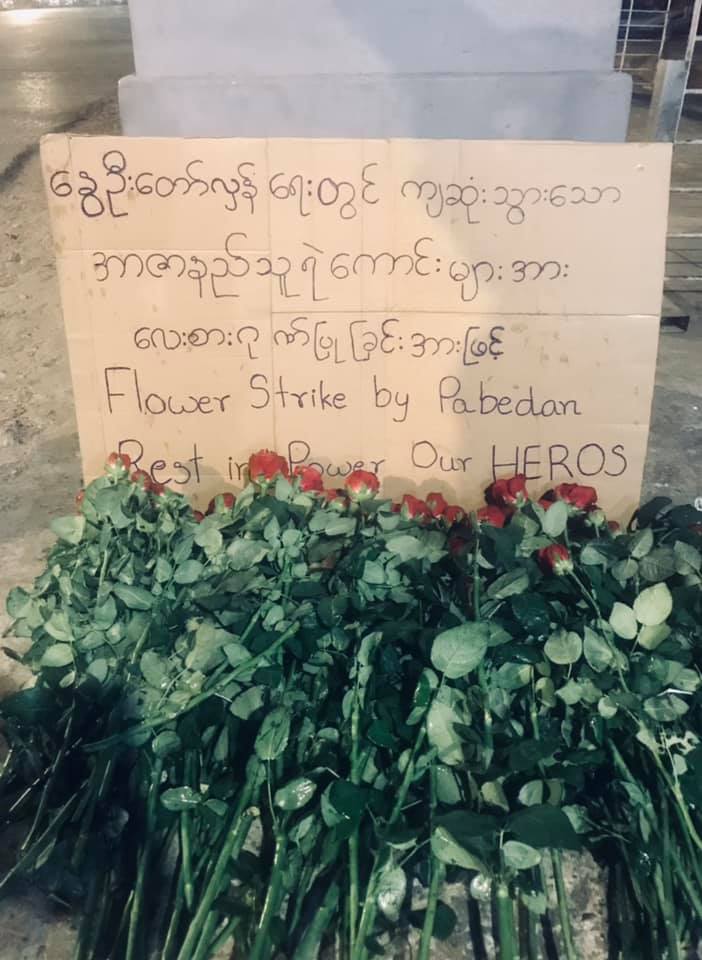 နွေဦးတော်လှန်ရေးတွင် ကျဆုံးသွားသော
အာဇာနည်သူရဲကောင်းများအား
လေးစားဂုဏ်ပြုခြင်းအားဖြင့်
Flower Strike by Pabedan
Rest in Power Our HEROS